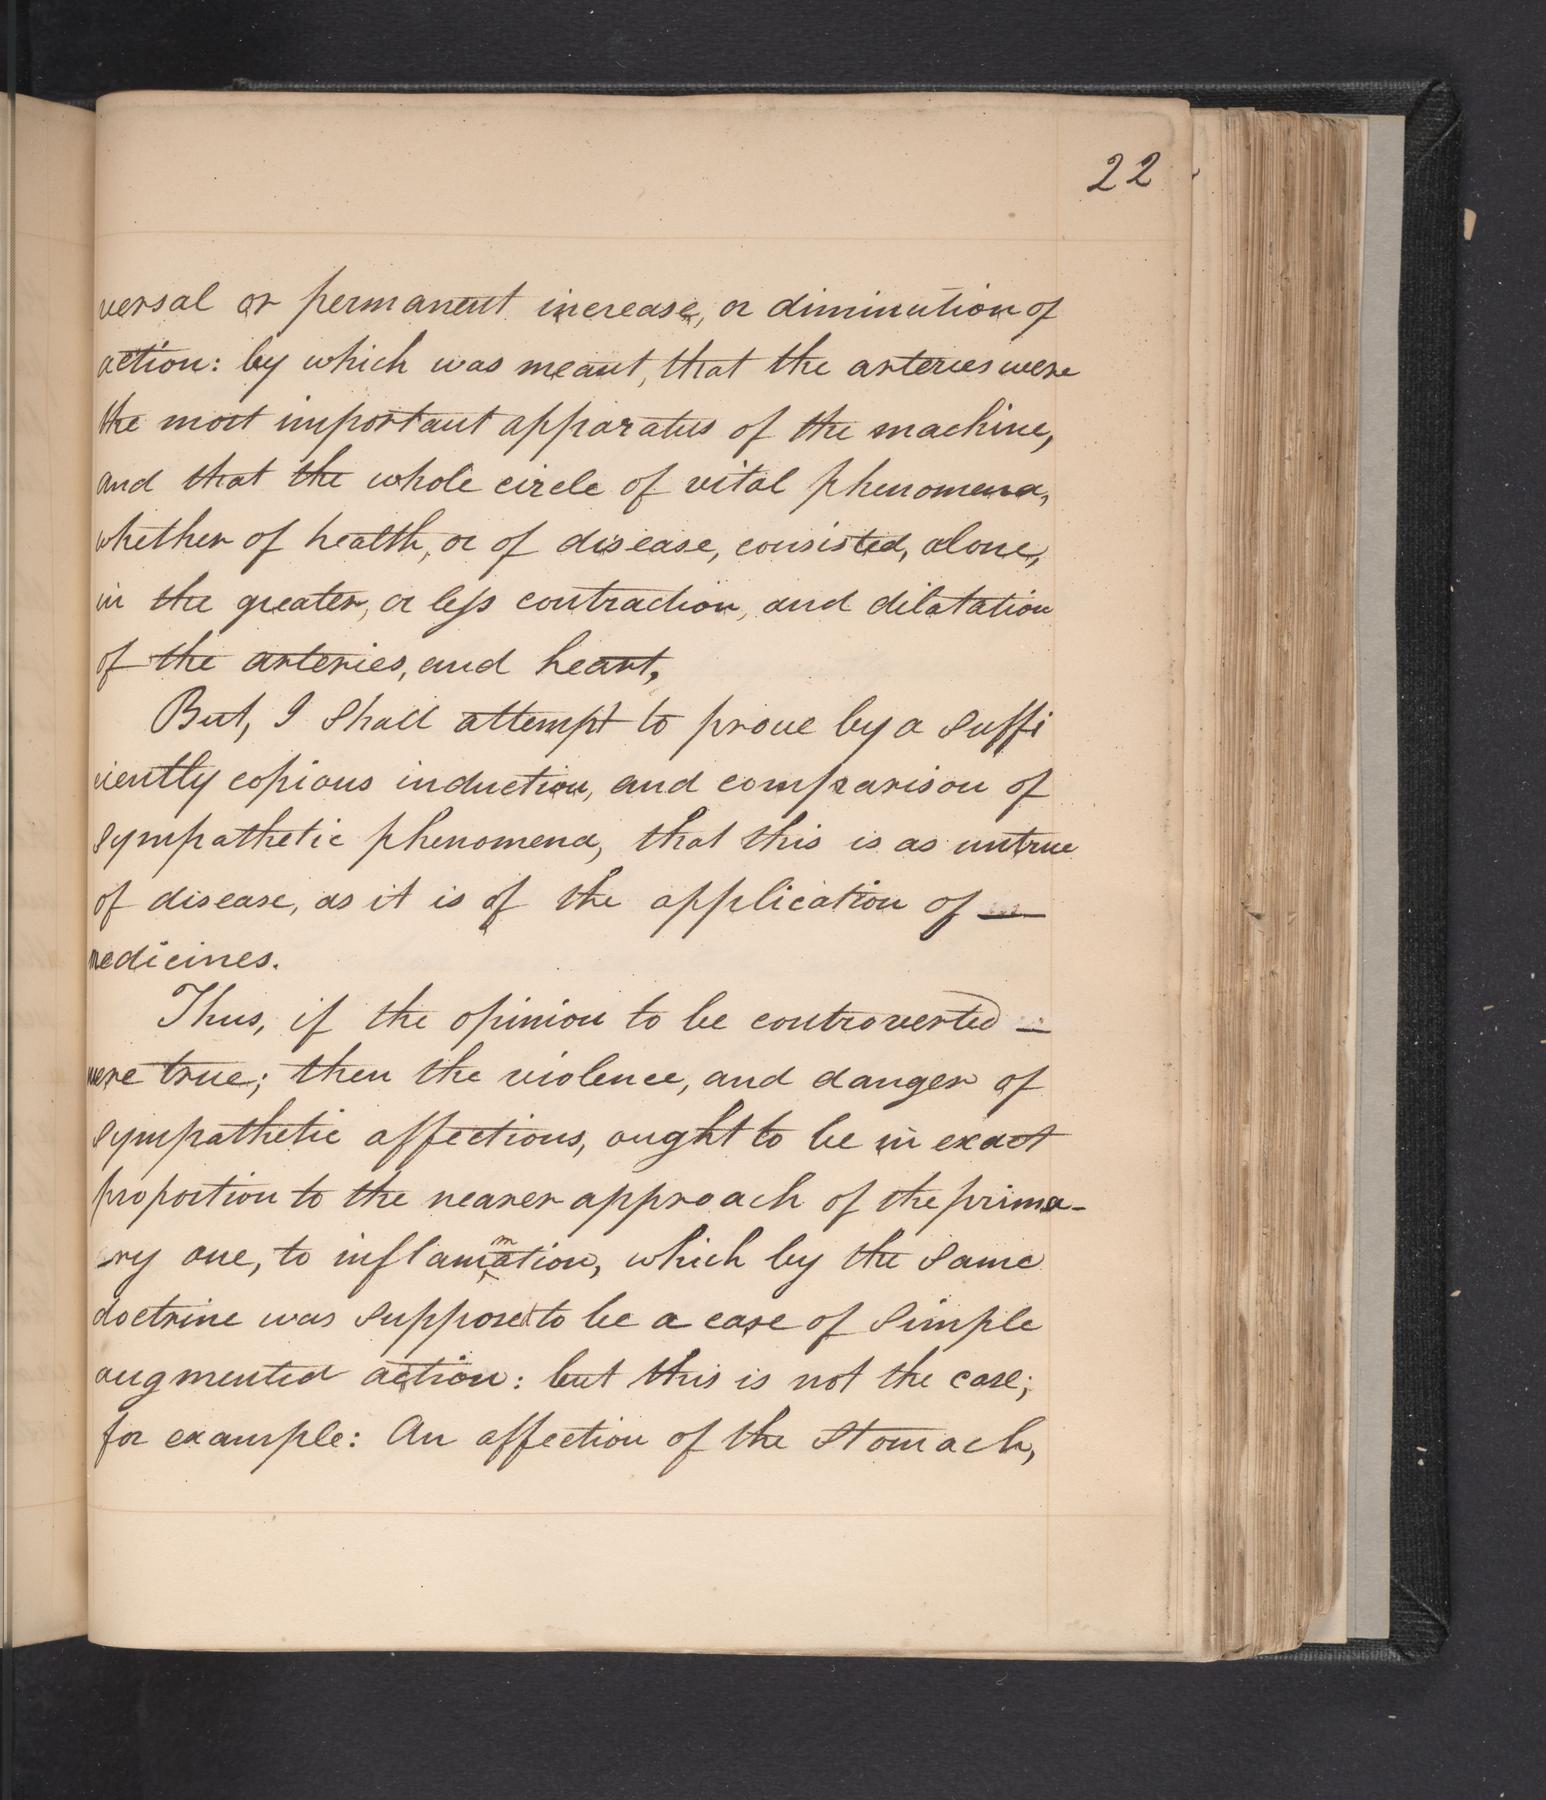 22
versal or permanent increase, or diminution of
action: by which was meant, that the arteries were
the most important apparatus of the machine,
and that the whole circle of vital phenomena,
whether of health, or of disease, consisted, alone,
in the greater, or less contraction, and dilatation
of the arteries, and heart,
But, I shall attempt to prove by a suffi
ciently copious induction, and comparison of
sympathetic phenomena, that this is as untrue
of disease, as it is of the application of —
medicines.
Thus, if the opinion to be controverted —
were true; then the violence, and danger of
sympathetic affections, ought to be in exact
proportion to the nearer approach of the prima-
ry one, to inflammation, which by the same
doctrine was supposed to be a case of simple
augmented action: but this is not the case;
for example: An affection of the stomach,